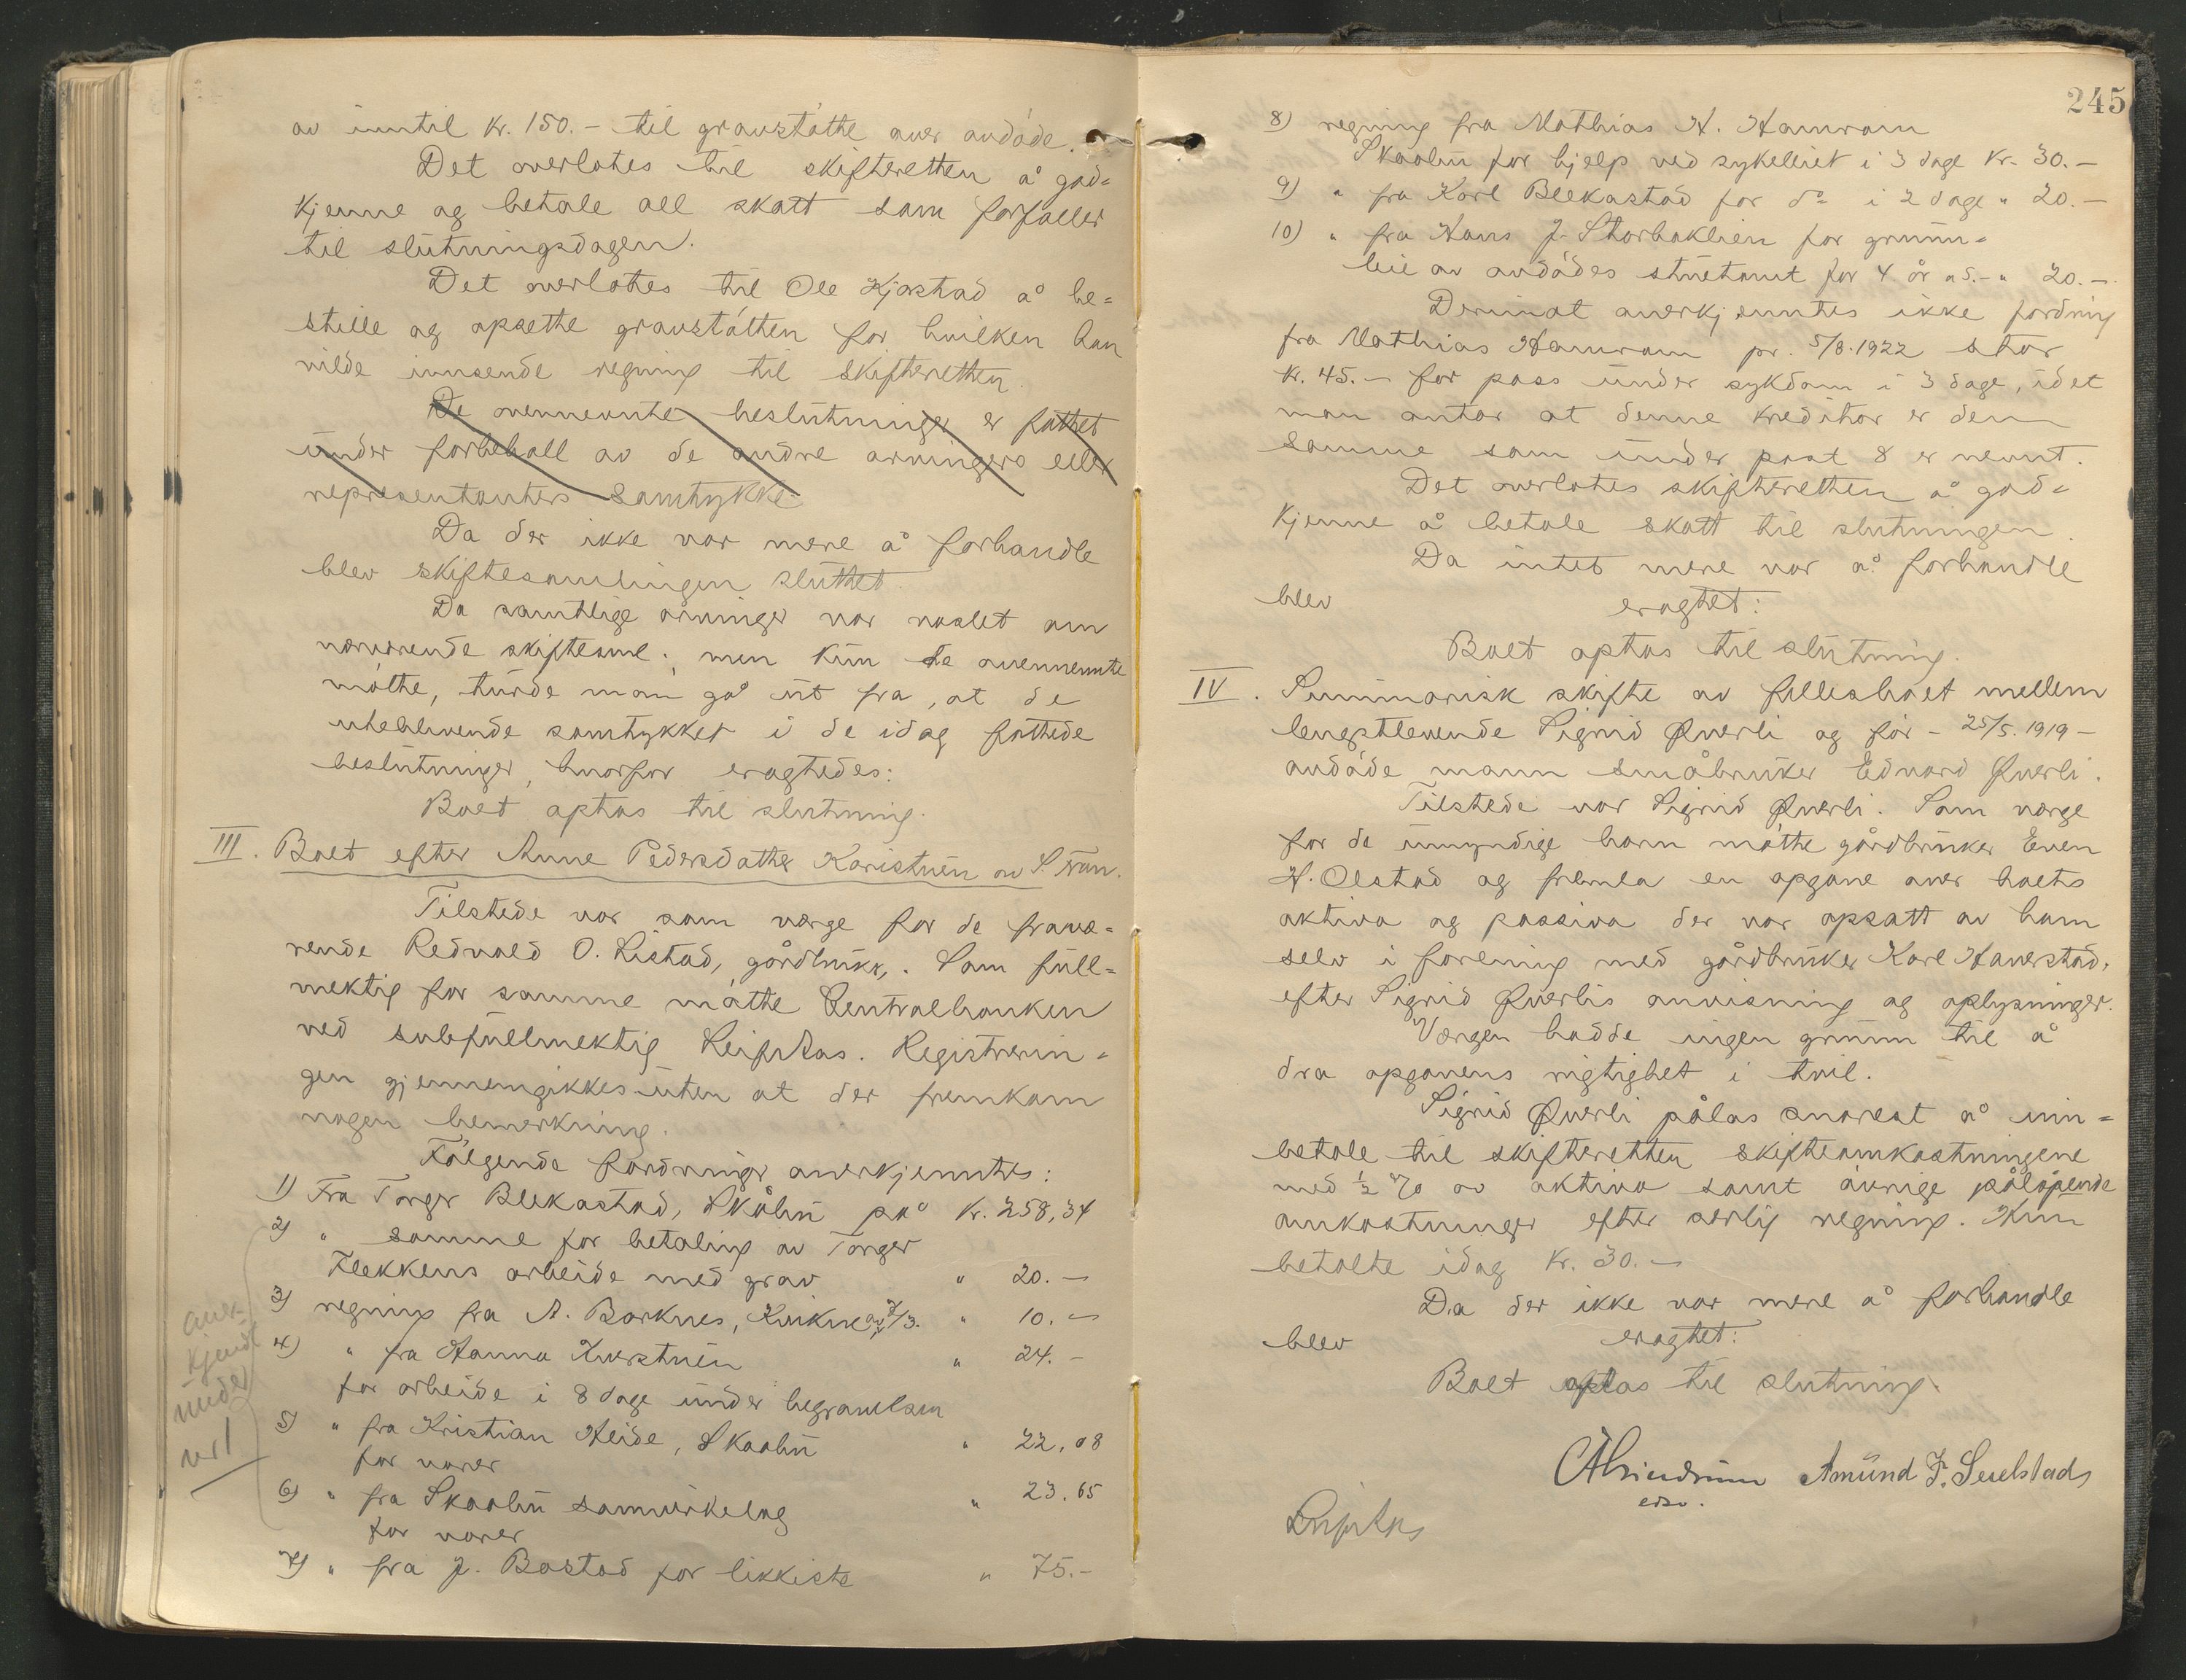 av inntil kr. 150.- til gravstøtte over avdøde.
Det overlotes til skifteretten å god=
kjenne og betale all skatt som forfaller
til slutningsdagen.
Det overlotes til Ole Kjøstad å be=
stille og opsette gravstøtten for hvilken han
vilde innsende regning til skifteretten.
De ovennevnte beslutninger er fattet
under forbehold av de andre arvingers eller
representanters samtykke
Da der ikke var mere å forhandle
blev skiftesamlingen sluttet.
Da samtlige arvinger var varslet om
nærværende skiftesaml. men kun de ovennevnte
møtte, turde man gå ut fra, at de
uteblivende samtykket i de idag fattede
beslutninger, hvorfor eragtedes:
Boet optas til slutning.
III. Boet efter Anne Pedersdatter Koristuen av S. Fron.
Tilstede var som verge for de fravæ=
rende Redvald O. Listad, gårdbruker. Som full=
mektig for samme møtte Centralbanken
ved subfullmektig Leif Aas. Registrerin=
gen gjennemgikkes uten at der fremkom
nogen bemerkning.
Følgende fordringer anerkjenntes:
1) Fra Torger Blekastad, Skåbu på kr. 258,34
2) " samme for betaling av Torger
Flekkens arbeide med grav " 20.-
3) regning fra A. Borknes, Kvikne av 7/3. " 10.-
4) " fra Hanna Kverstuen " 24.-
for arbeide i 8 dage under begravelsen
5) " fra Kristian Heide, Skaabu " 22,08
for varer
6) " fra Skaabu samvirkelag " 23.65
for varer
7) " fra J. Bostad for likkiste " 75.-
aner-
kjendt
under
nr 1
245
8) regning fra Mathias H. Hamram
Skaabu for hjelp ved sykeleiet i 3 dage kr. 30.-
9) " fra Karl Blekastad for do i 2 dage " 20.-
10) " fra Hans J. Storbaklien for grunn=
leie av avdødes stuetomt for 4 år a 5.- " 20.-
Derimot anerkjenntes ikke fordring
fra Mathias Hamram pr. 5/8.1922 stor
kr. 45.- for pass under sykdom i 3 dage, idet
man antar at denne kreditor er den
samme som under post 8 er nevnt.
Det overlotes skifteretten å god=
kjenne å betale skatt til slutningen.
Da intet mere var å forhandle
blev eragtet:
Boet optas til slutning.
IV. Summarisk skifte av fellesboet mellem
lengstlevende Sigrid Øverli og før - 25/5. 1919 -
avdøde mann småbruker Edvard Øverli.
Tilstede var Sigrid Øverli. Som verge
for de umyndige barn møtte gårdbruker Even
H. Olstad og fremla en opgave over boets
aktiva og passiva der var opsatt av ham
selv i forening med gårdbruker Karl Haverstad,
efter Sigrid Øverlis anvisning og oplysninger.
Vergen hadde ingen grunn til å
dra opgavens rigtighet i tvil.
Sigrid Øverli pålas snarest å inn=
betale til skifteretten skifteomkostningene
med ½ % av aktiva samt øvrige påløpende
omkostninger efter særlig regning. Hun
betalte idag kr. 30.-
Da der ikke var mere å forhandle
blev eragtet:
Boet optas til slutning.
Amund F. Sulstad
Leif Aas